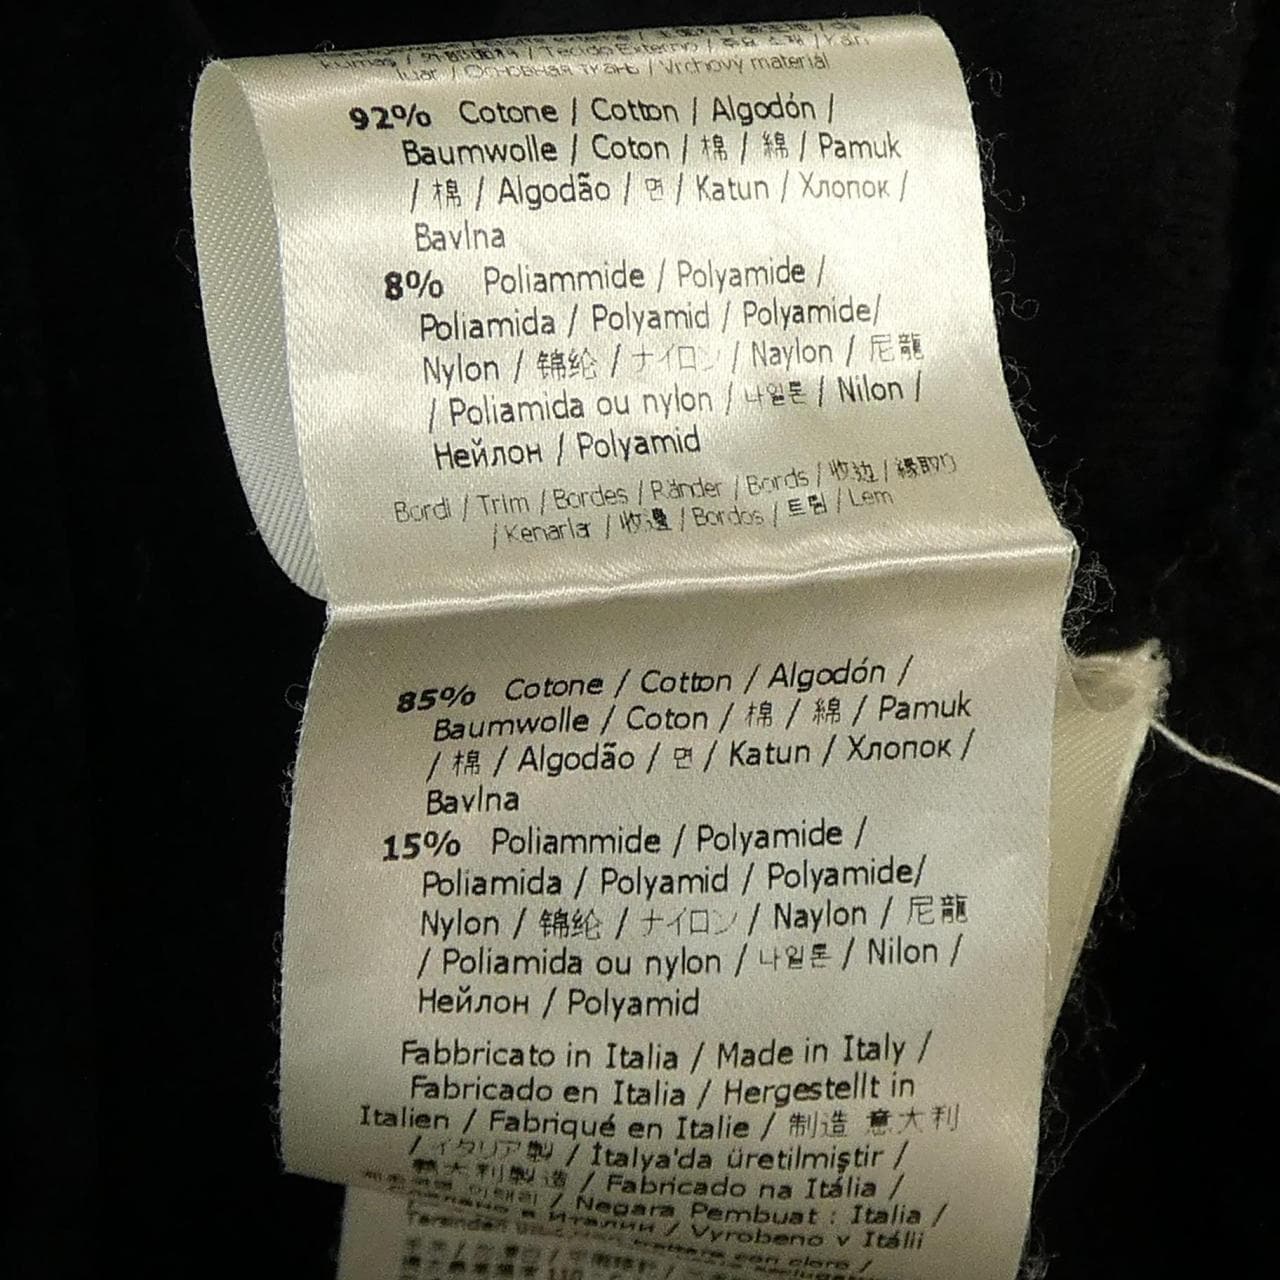 kumaş / 外部面料 / Tecido Externo / 주요 소재 / Kain
luar / Основная ткань / Vrchový materiál
92% Cotone / Cotton / Algodón /
Baumwolle / Coton / 棉 / 綿 / Pamuk
/ 棉 / Algodão / 면 / Katun / Хлопок /
Bavlna
8% Poliammide / Polyamide /
Poliamida / Polyamid / Polyamide/
Nylon / 锦纶 / ナイロン / Naylon / 尼龍
/ Poliamida ou nylon / 나일론 / Nilon /
Нейлон / Polyamid
Bordi / Trim / Bordes / Ränder / Bords / 收边 / 縁取り
/ Kenarlar / 收邊 / Bordos / 트림 / Lem
85% Cotone / Cotton / Algodón /
Baumwolle / Coton / 棉 / 綿 / Pamuk
/ 棉 / Algodão / 면 / Katun / Хлопок /
Bavlna
15% Poliammide / Polyamide /
Poliamida / Polyamid / Polyamide/
Nylon / 锦纶 / ナイロン / Naylon / 尼龍
/ Poliamida ou nylon / 나일론 / Nilon /
Нейлон / Polyamid
Fabbricato in Italia / Made in Italy /
Fabricado en Italia / Hergestellt in
Italien / Fabriqué en Italie / 制造 意大利
/ イタリア製 / İtalya'da üretilmiştir /
義大利製造 / Fabricado na Itália /
제조국명 이태리 / Negara Pembuat : Italia /
Сделано в Италии / Vyrobeno v Itálii